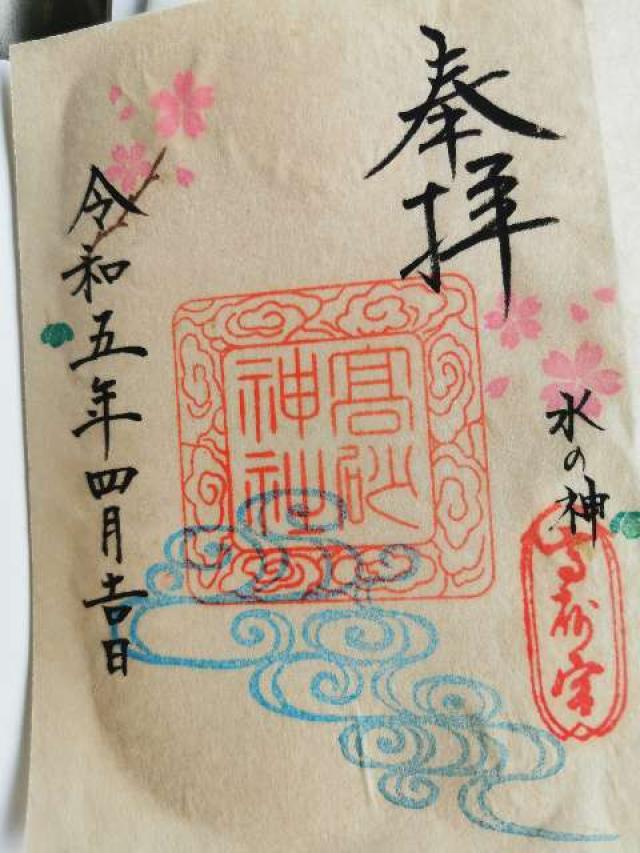 奉拝
水の神
高砂宮
髙砂
神社
令和五年四月吉日